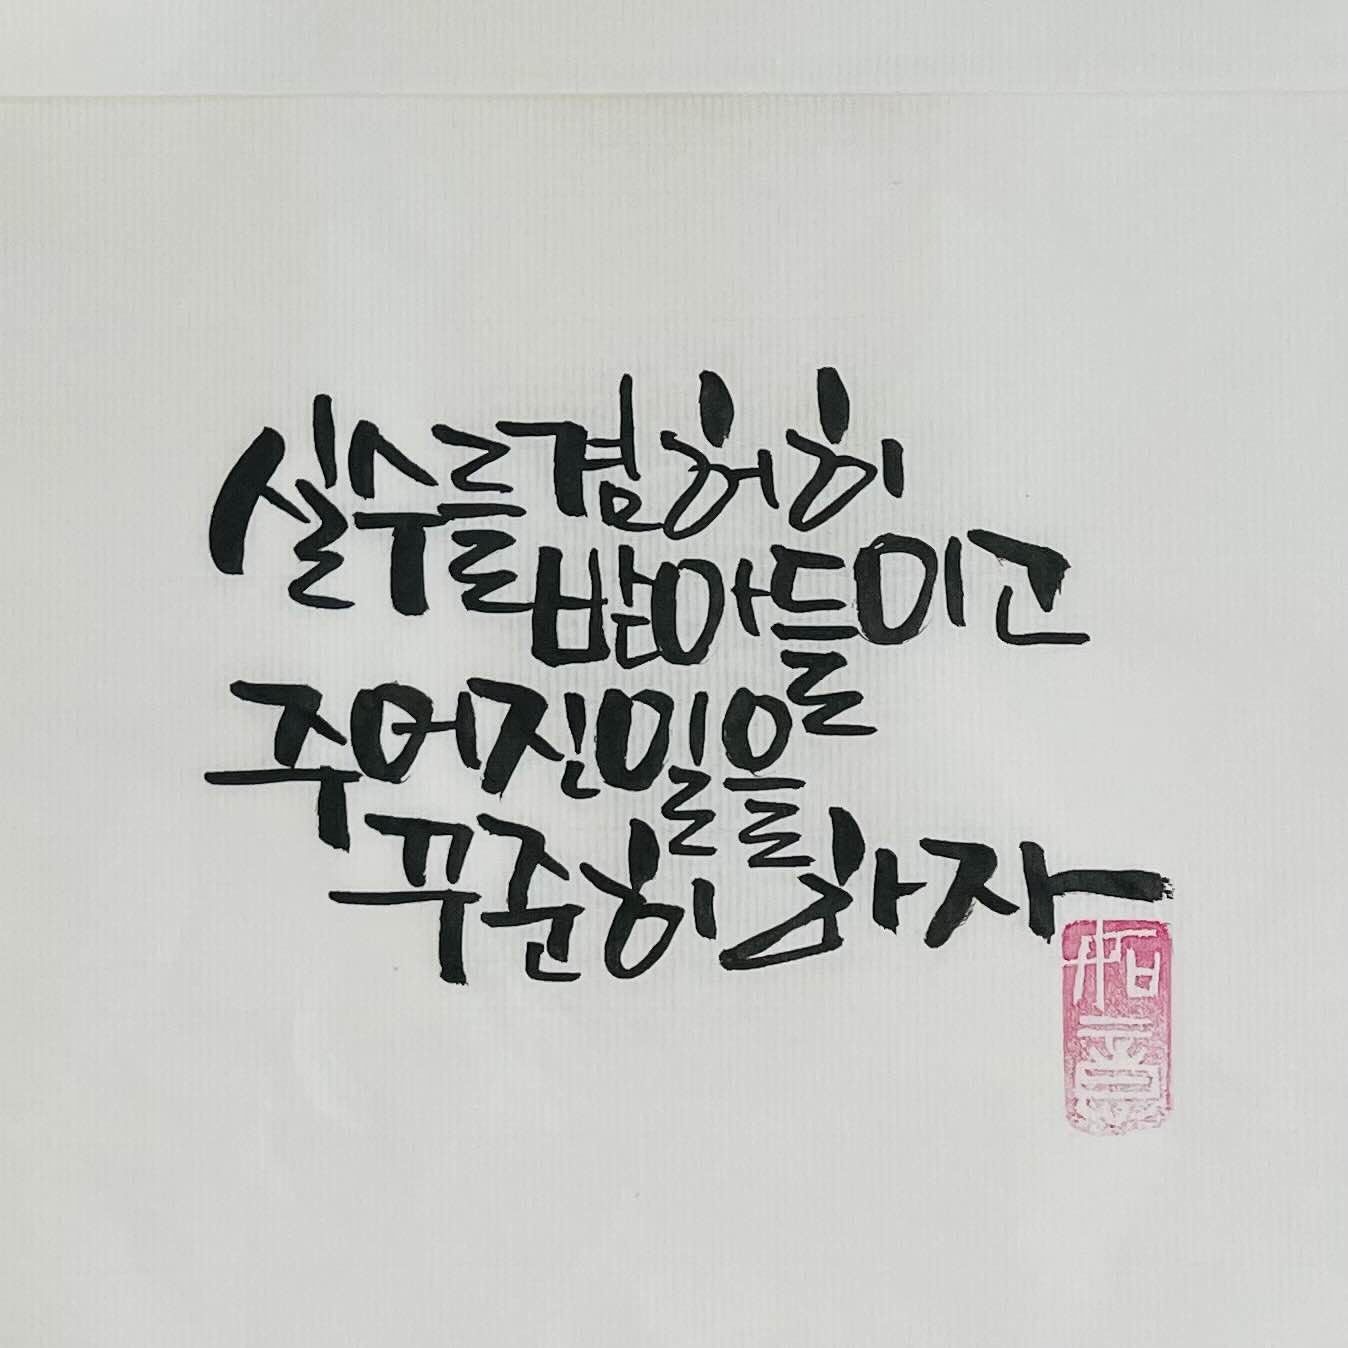 실수를 겸허히
받아들이고
주어진 일을
꾸준히 하자